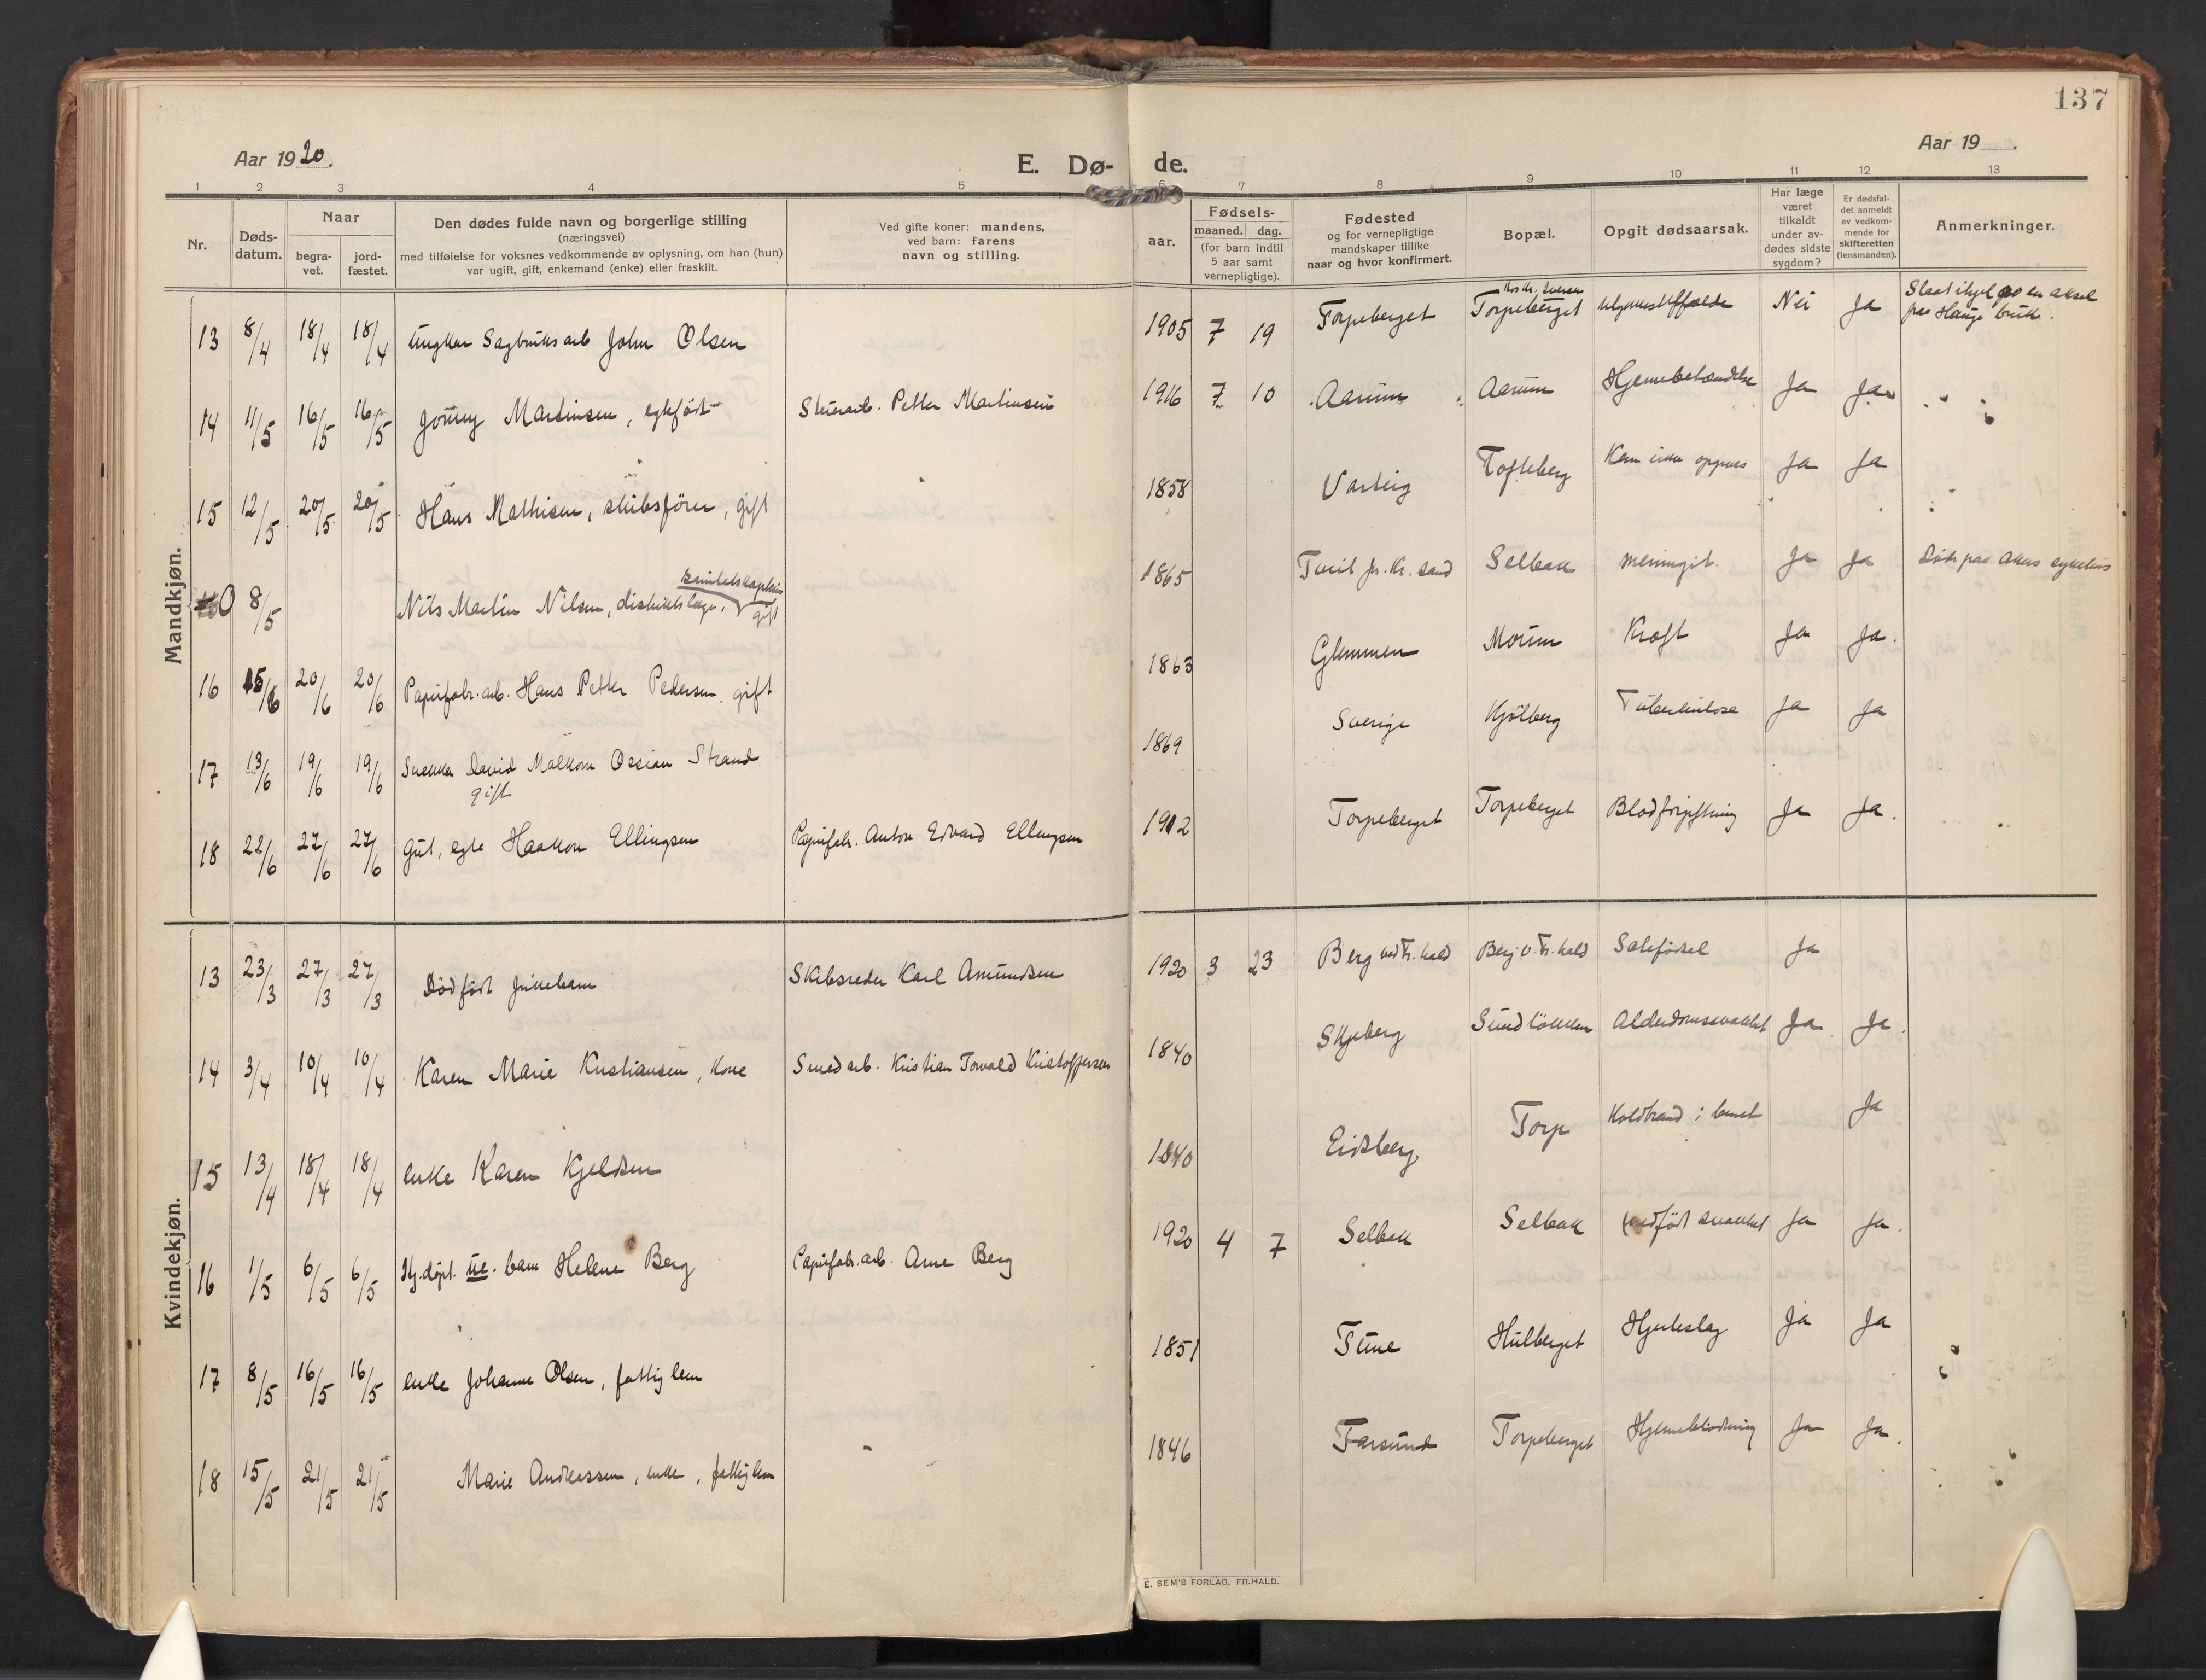 137
Aar 1920.
E. Dø-
de.
Aar 19 .
1 2 3 4 5 6 7 8 9 10 11 12 13
Nr.
Døds-
datum.
Naar
begra-
vet.
jord-
fæstet.
Den dødes fulde navn og borgerlige stilling
(næringsvei)
med tilføielse for voksnes vedkommende av oplysning, om han (hun)
var ugift, gift, enkemand (enke) eller fraskilt.
Ved gifte koner: mandens,
ved barn: farens
navn og stilling.
aar.
Fødsels-
maaned. dag.
(for barn indtil
5 aar samt
vernepligtige).
Fødested
og for vernepligtige
mandskaper tillike
naar og hvor konfirmert.
Bopæl.
Opgit dødsaarsak.
Har læge
været
tilkaldt
under av-
dødes sidste
sygdom?
Er dødsfal-
det anmeldt
av vedkom-
mende for
skifteretten
(lensmanden).
Anmerkninger.
Mandkjøn.
13 8/4 18/4 18/4 Ungkar Sagbruksarb John Olsen 1905 7 19 Torpeberget Torpeberget Nei Ja Slaat ihjel av en aksel
paa Hauge bruk.
14 11/5 16/5 16/5 Martinsen, egtefødt Petter Martinsen 1916 7 10 Aarum Aarum Hjernebetændelse Ja Ja
15 12/5 20/5 20/5 Hans Mathisen, skibsfører, gift 1858 Varteig Tofteberg Kan ikke opgives Ja Ja
0 8/5 Nils Martin Nilsen, distriktslæge, gift 1865 Selbak meningit. Ja Ja Døde paa Akers sykehus
16 15/6 20/6 20/6 Papirfabr. arb. Hans Petter Pedersen gift 1863 Glemmen Moum Kræft Ja Ja.
17 13/6 19/6 19/6 Snekker David Malkom Ossian Strand
gift 1869 Sverige Kjölberg Tuberkulose Ja Ja
18 22/6 27/6 27/6 Gut, egte Haakon Ellingsen Papirfabr. Anton Edvard Ellingsen 1912 Torpeberget Torpeberget Blodforgiftning Ja Ja.
Kvindekjøn.
13 23/3 27/3 27/3 Dødfødt pikebarn Skibsreder Karl Amundsen 1920 3 23 Berg ved Fr.hald Berg v. Fr.hald Ja
14 3/4 10/4 10/4 Karen Marie Kristiansen, kone Smedarb. Kristian Torvald Kristoffersen 1840 Skjeberg Sundløkken Alderdomssvakhet Ja Ja.
15 13/4 18/4 18/4 enke Karen Kjeldsen 1840 Eidsberg Torp Koldbrand i benet Ja
16 1/5 6/5 6/5 Hj.døpt. ue. barn Helene Berg Papirfabr. arb. Arne Berg 1920 4 7 Selbak Selbak medfødt svakhet Ja Ja.
17 8/5 16/5 16/5 enke Johanne Olsen, fattiglem 1851 Tune Hulberget Hjerteslag Ja Ja
18 15/5 21/5 21/5 Marie Andreassen, enke, fattiglem 1846 Farsund Torpeberget Hjerneblødning Ja Ja.
E. SEM'S FORLAG, FR.HALD.